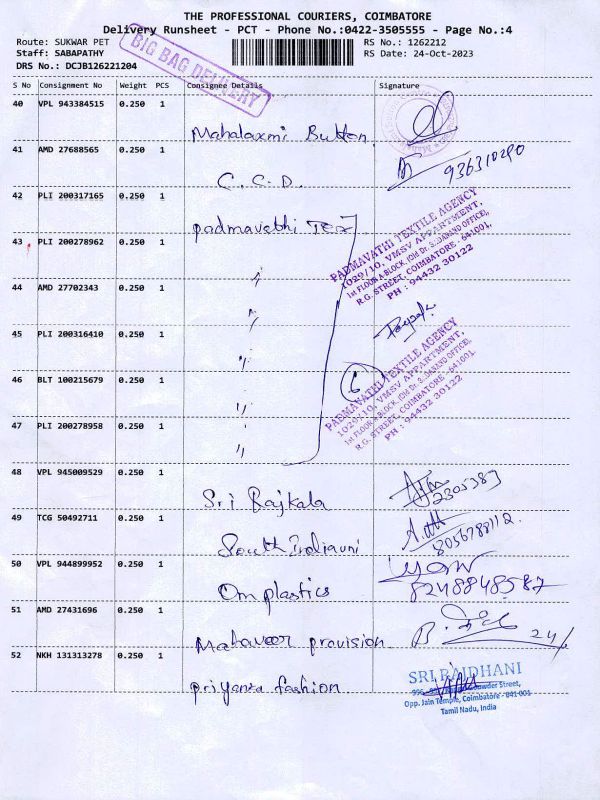 THE PROFESSIONAL COURIERS, COIMBATORE
Delivery Runsheet - PCT - Phone No.:0422-3505555 - Page No.:4
Route: SUKWAR PET
RS No.: 1262212
Staff: SABAPATHY
RS Date: 24-Oct-2023
DRS No.: DCJB126221204
BIG BAG DELIVERY
S No Consignment No Weight PCS Consignee Details Signature
40 VPL 943384515 0.250 1
Mahalaxmi Button
41 AMD 27688565 0.250 1
C.C.D.
42 PLI 200317165 0.250 1
padmavathi Tex
PADMAVATHI TEXTILE AGENCY
1029/10, VMSV APPARTMENT,
1st FLOOR A BLOCK, (Old Dr. S. DASAND OFFICE),
R.G. STREET, COIMBATORE - 641001.
PH : 94432 30122
43 PLI 200278962 0.250 1
"
44 AMD 27702343 0.250 1
"
45 PLI 200316410 0.250 1
"
46 BLT 100215679 0.250 1
"
6
PADMAVATHI TEXTILE AGENCY
1029/10, VMSV APPARTMENT,
1st FLOOR A BLOCK, (Old Dr. S. DASAND OFFICE),
R.G. STREET, COIMBATORE - 641001.
PH : 94432 30122
47 PLI 200278958 0.250 1
"
48 VPL 945009529 0.250 1
Sri Rajkala
2305383
49 TCG 50492711 0.250 1
8056788112.
50 VPL 944899952 0.250 1
Om plastics
8248848587
51 AMD 27431696 0.250 1
Mahaveer provision
52 NKH 131313278 0.250 1
priyanka fashion
SRI RAJDHANI
Opp. Jain Temple, Coimbatore - 641 001
Tamil Nadu, India